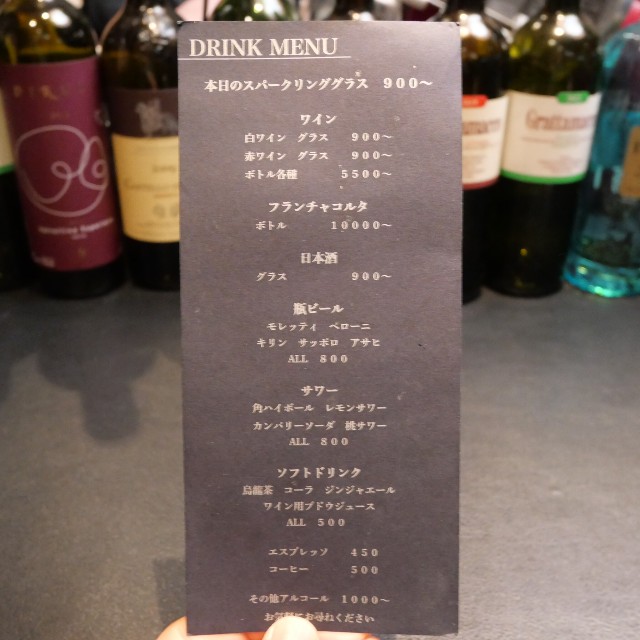 DRINK MENU
本日のスパークリンググラス 900〜
ワイン
白ワイン グラス 900〜
赤ワイン グラス 900〜
ボトル各種 5500〜
フランチャコルタ
ボトル 10000〜
日本酒
グラス 900〜
瓶ビール
モレッティ ペローニ
キリン サッポロ アサヒ
ALL 800
サワー
角ハイボール レモンサワー
カンパリーソーダ 桃サワー
ALL 800
ソフトドリンク
烏龍茶 コーラ ジンジャエール
ワイン用ブドウジュース
ALL 500
エスプレッソ 450
コーヒー 500
その他アルコール 1000〜
お気軽にお尋ねください